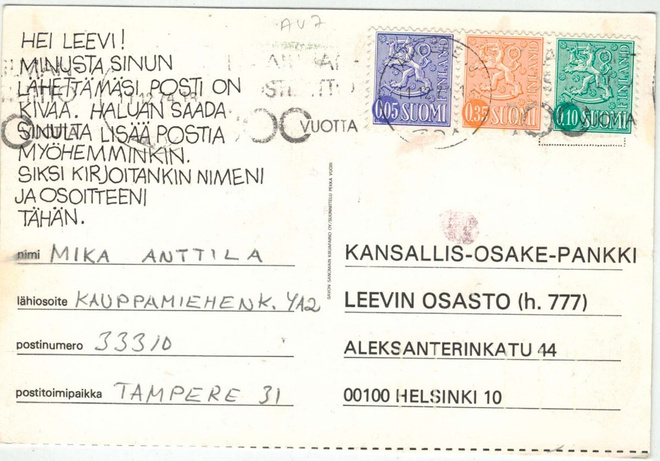 AV7
HEI LEEVI!
MINUSTA SINUN
LÄHETTÄMÄSI POSTI ON
KIVAA. HALUAN SAADA
SINULTA LISÄÄ POSTIA
MYÖHEMMINKIN.
SIKSI KIRJOITANKIN NIMENI
JA OSOITTEENI
TÄHÄN.
VUOTTA
0.05 SUOMI
0.35 SUOMI
0.10 SUOMI
nimi MIKA ANTTILA
lähiosoite KAUPPAMIEHENK. 4A2
postinumero 33310
postitoimipaikka TAMPERE 31
KANSALLIS-OSAKE-PANKKI
LEEVIN OSASTO (h. 777)
ALEKSANTERINKATU 44
00100 HELSINKI 10